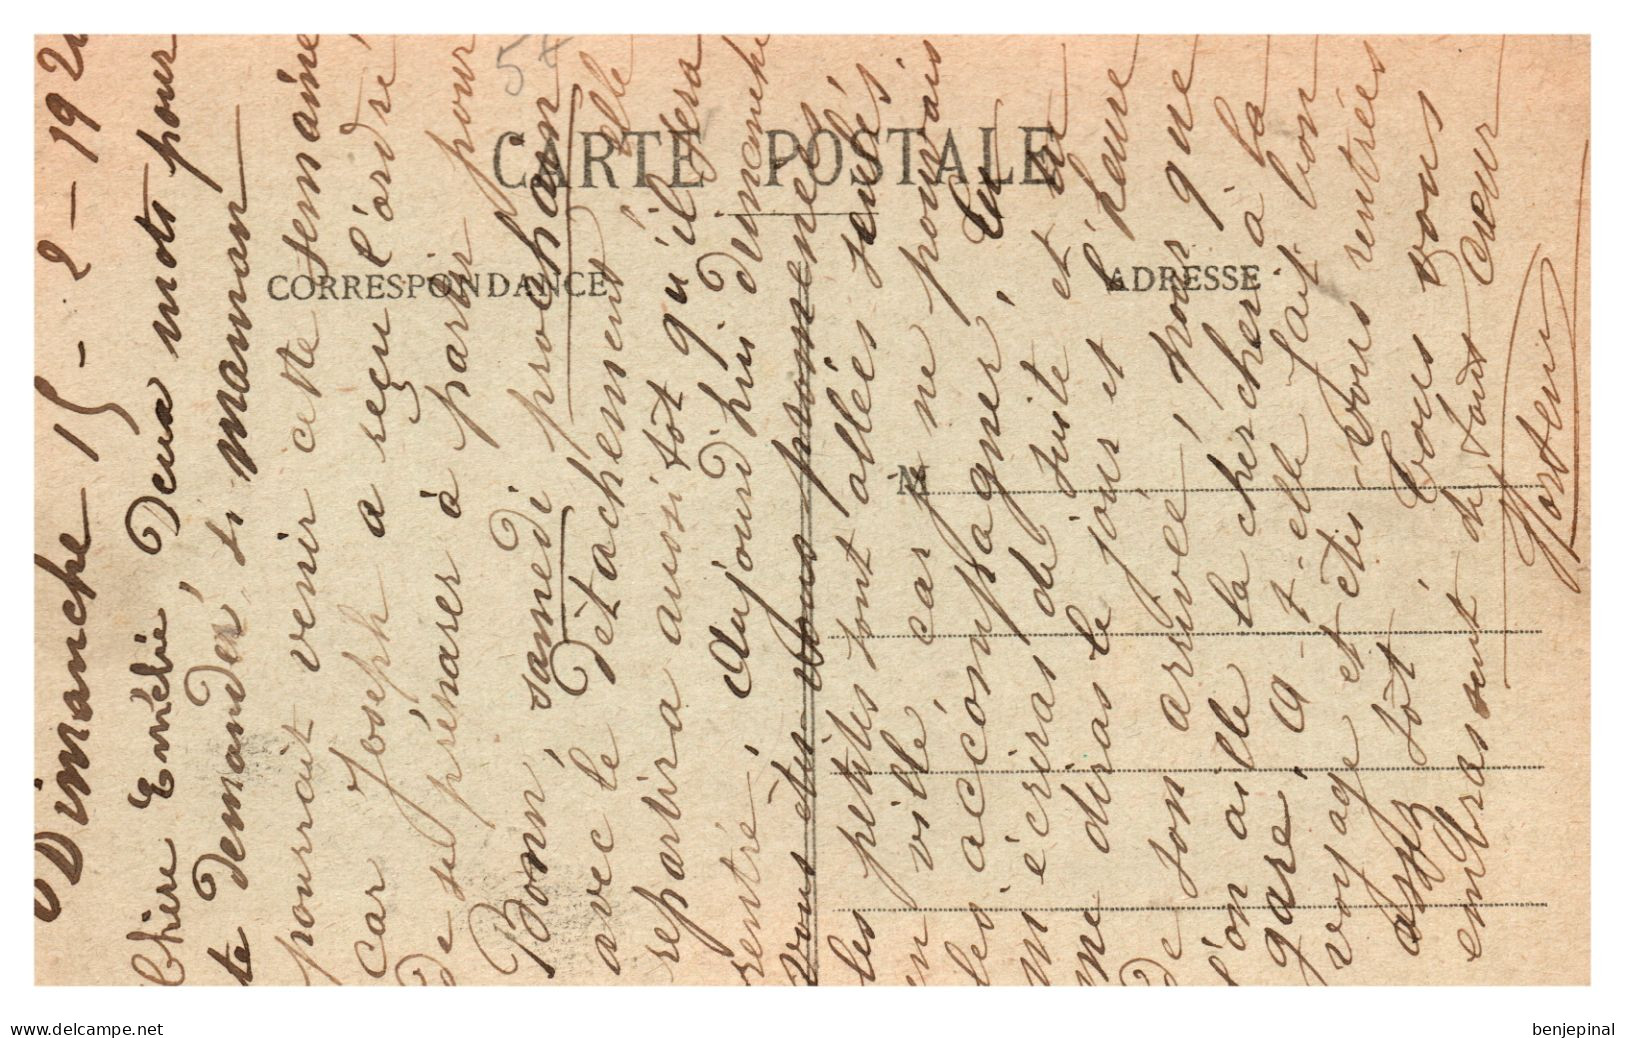 Dimanche 15 - 2 - 192
Chère Deux mots pour
te demander, si maman
pourrait venir cette semaine
car Joseph a reçu l'ordre
de se préparer à partir pour
Bonn, samedi prochain
avec le détachement elle
repartira aussitôt qu'il sera
rentré, Aujourd'hui dimanche
vous êtes vous promenés
les petites sont allées seules
en ville car je ne pouvais
les accompagner, tu
m'écriras de suite et tu
me diras le jour et l'heure
de son arrivée pour que
l'on aille la chercher à la
gare, a t-elle fait bon
voyage et êtes vous rentrées
assez tôt, Tous vous
embrassent de tout cœur
54
CARTE POSTALE
CORRESPONDANCE
ADRESSE
M
www.delcampe.net
benjepinal